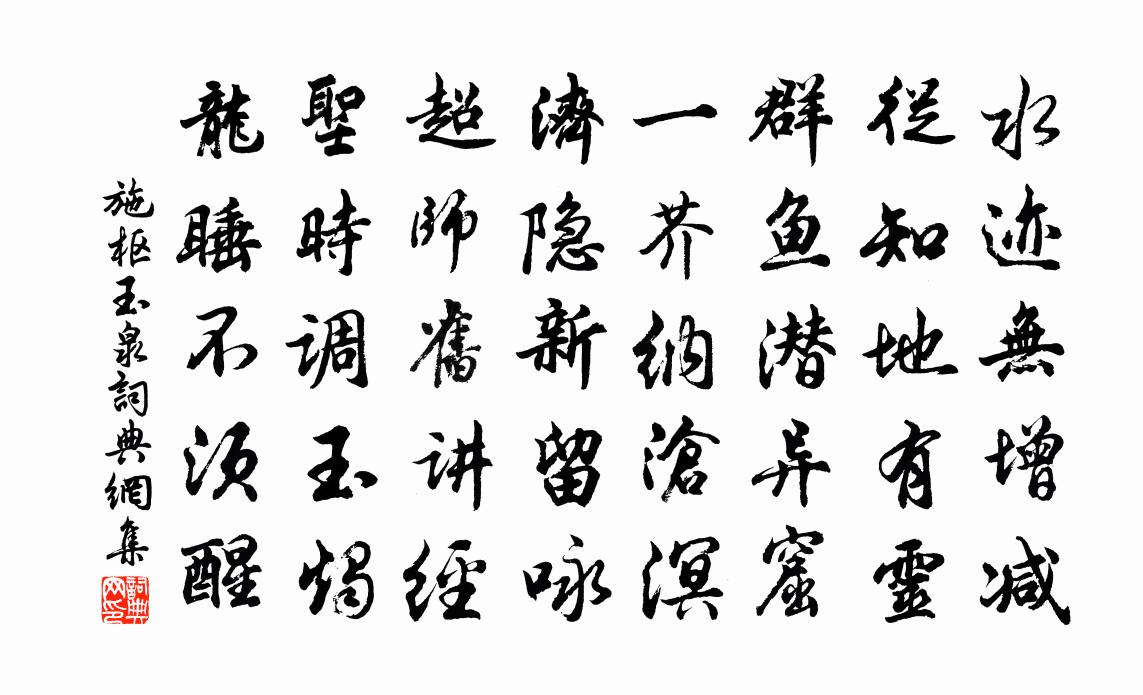 水迹無增减
從知地有靈
群鱼潜异窟
一芥纳滄溟
濟隐新留咏
超師舊讲經
聖時调玉燭
龍睡不须醒
施枢玉泉詞典網集
詞典网印